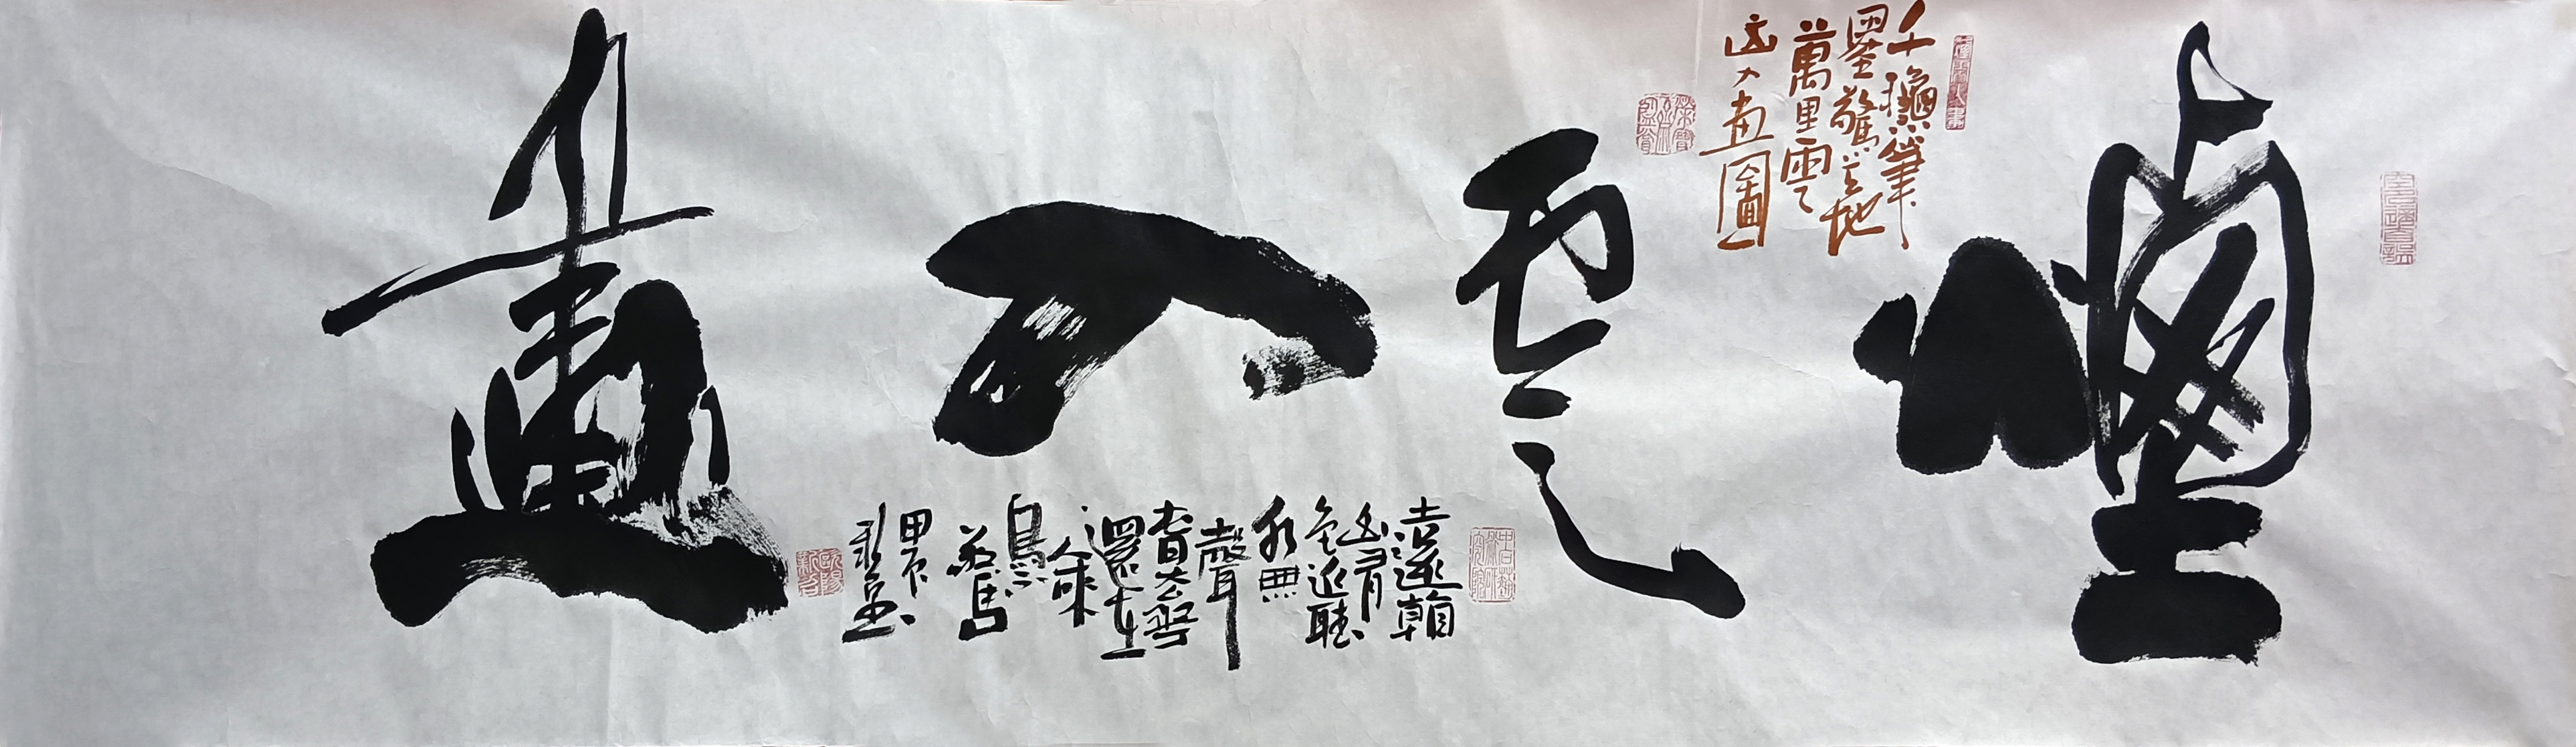 煙云入畫
千龝筆
墨驚天地
萬里雲
山入畫圖
遠觀
山有
色近聽
水無
聲
春去花
還在
人來
鳥不
驚
甲辰